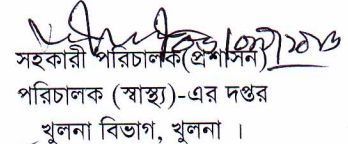 সহকারী পরিচালক(প্রশাসন)
পরিচালক (স্বাস্থ্য)-এর দপ্তর
খুলনা বিভাগ, খুলনা ।